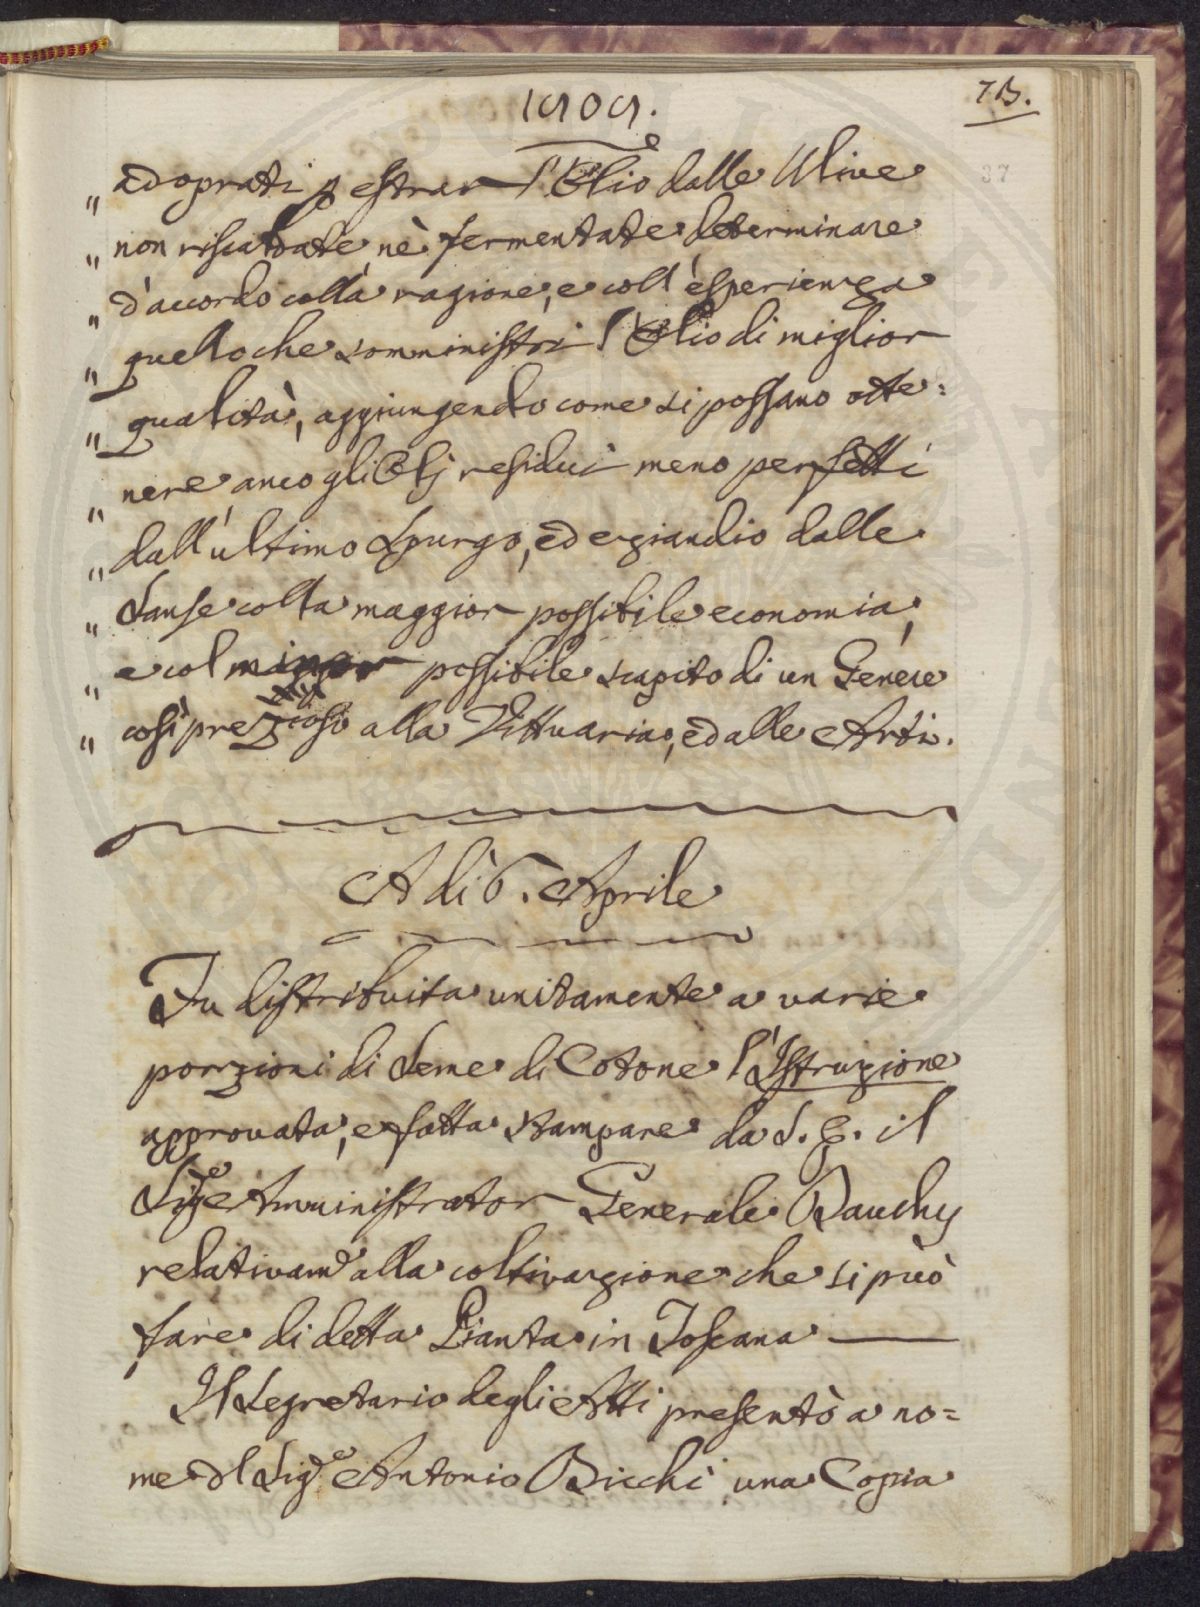 1809.
73.
37
" adoprati p estrar l'Olio dalle Ulive
" non riscaldate, nè fermentate determinare
" d'accordo colla ragione, e coll'esperienza
" quello che somministri l'Olio di miglior
" qualità, aggiungendo come si possano otte=
" nere anco gli Olj residui meno perfetti
" dall'ultimo Spurgo, ed eziandio dalle
" Sanse colla maggior possibile economia,
" e col minor possibile scapito di un Genere
" così prezioso alla Vittuaria, ed alle Arti.
A dì 6. Aprile
Fu distribuita unitamente a varie
porzioni di Seme di Cotone l'Istruzione
approvata, e fatta stampare da S. E. il
Sig.e Amministrator Generale Dauchy
relativam.e alla coltivazione che si può
fare di detta Pianta in Toscana
Il Segretario degli Atti presentò a no=
me del Sig.e Antonio Bicchi una Copia